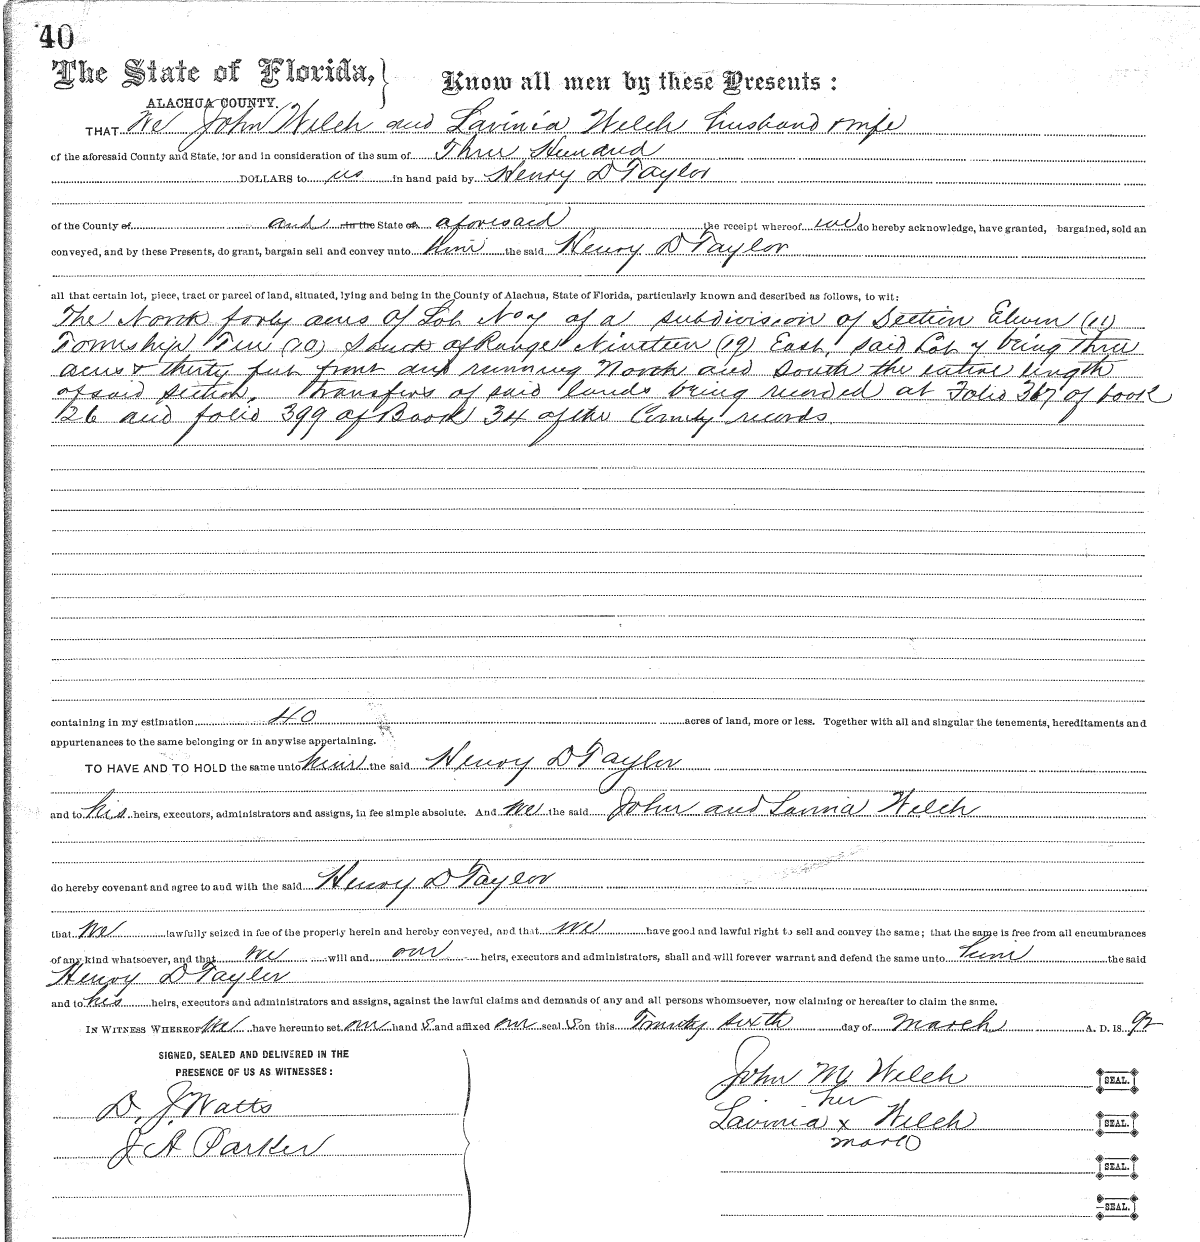 40
The State of Florida, } Know all men by these Presents :
ALACHUA COUNTY.
THAT We John Welch and Lavinia Welch husband & wife
of the aforesaid County and State, for and in consideration of the sum of Three Hundred
DOLLARS to us in hand paid by Henry D Taylor
of the County of and in the State of aforesaid the receipt whereof we do hereby acknowledge, have granted, bargained, sold an
conveyed, and by these Presents, do grant, bargain sell and convey unto him the said Henry D Taylor
all that certain lot, piece, tract or parcel of land, situated, lying and being in the County of Alachua, State of Florida, particularly known and described as follows, to wit:
The North forty acres of Lot No 7 of a subdivision of Section Eleven (11)
Township Ten (10) South of Range Nineteen (19) East, said Lot 7 being three
acres & thirty feet front and running North and South the entire length
of said section. Transfers of said lands being recorded at Folio 367 of book
26 and folio 399 of Book 34 of the County records.
containing in my estimation 40 acres of land, more or less. Together with all and singular the tenements, hereditaments and
appurtenances to the same belonging or in anywise appertaining.
TO HAVE AND TO HOLD the same unto him the said Henry D Taylor
and to his heirs, executors, administrators and assigns, in fee simple absolute. And we the said John and Lavinia Welch
do hereby covenant and agree to and with the said Henry D Taylor
that we lawfully seized in fee of the property herein and hereby conveyed, and that we have good and lawful right to sell and convey the same; that the same is free from all encumbrances
of any kind whatsoever, and that we will and our heirs, executors and administrators, shall and will forever warrant and defend the same unto him the said
Henry D Taylor
and to his heirs, executors and administrators and assigns, against the lawful claims and demands of any and all persons whomsoever, now claiming or hereafter to claim the same.
IN WITNESS WHEREOF We have hereunto set our hand s and affixed our seal s on this Twenty sixth day of March A. D. 18 92
SIGNED, SEALED AND DELIVERED IN THE
PRESENCE OF US AS WITNESSES:
D. J. Watts
J A Parker
John M Welch SEAL.
her
Lavinia x Welch SEAL.
mark
SEAL.
SEAL.